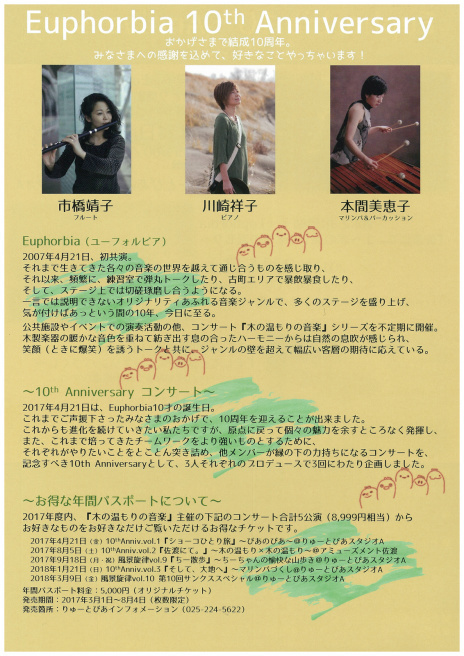 Euphorbia 10th Anniversary
おかげさまで結成10周年。
みなさまへの感謝を込めて、好きなことやっちゃいます!
市橋靖子
フルート
川崎祥子
ピアノ
本間美恵子
マリンバ&パーカッション
Euphorbia(ユーフォルビア)
2007年4月21日、初共演。
それまで生きてきた各々の音楽の世界を越えて通じ合うものを感じ取り、
それ以来、頻繁に、練習室で弾丸トークしたり、古町エリアで暴飲暴食したり、
そして、ステージ上では切磋琢磨し合うようになる。
一言では説明できないオリジナリティあふれる音楽ジャンルで、多くのステージを盛り上げ、
気が付けばあっという間の10年、今日に至る。
公共施設やイベントでの演奏活動の他、コンサート『木の温もりの音楽』シリーズを不定期に開催。
木製楽器の暖かな音色を重ねて紡ぎ出す息の合ったハーモニーからは自然の息吹が感じられ、
笑顔(ときに爆笑)を誘うトークと共に、ジャンルの壁を超えて幅広い客層の期待に応えている。
〜10th Anniversary コンサート〜
2017年4月21日は、Euphorbia10才の誕生日。
これまでご声援下さったみなさまのおかげで、10周年を迎えることが出来ました。
これからも進化を続けていきたい私たちですが、原点に戻って個々の魅力を余すところなく発揮し、
また、これまで培ってきたチームワークをより強いものとするために、
それぞれがやりたいことをとことん突き詰め、他メンバーが縁の下の力持ちになるコンサートを、
記念すべき10th Anniversaryとして、3人それぞれのプロデュースで3回にわたり企画しました。
〜お得な年間パスポートについて〜
2017年度内、『木の温もりの音楽』主催の下記のコンサート合計5公演(8,999円相当)から
お好きなものをお好きなだけご覧いただけるお得なチケットです。
2017年4月21日(金)10thAnniv.vol.1『ショーコひとり旅』〜ぴあのぴあ〜@りゅーとぴあスタジオA
2017年8月5日(土)10thAnniv.vol.2『佐渡にて。』〜木の温もり×木の温もり〜@アミューズメント佐渡
2017年9月18日(月・祝)風景旋律vol.9『ちー散歩』〜ちーちゃんの愉快な山歩き@りゅーとぴあスタジオA
2018年1月21日(日)10thAnniv.vol.3『そして、大地へ』〜マリンバづくし@りゅーとぴあスタジオA
2018年3月9日(金)風景旋律vol.10 第10回サンクススペシャル@りゅーとぴあスタジオA
年間パスポート料金:5,000円(オリジナルチケット)
発売期間:2017年3月1日〜8月4日(枚数限定)
発売箇所:りゅーとぴあインフォメーション(025-224-5622)